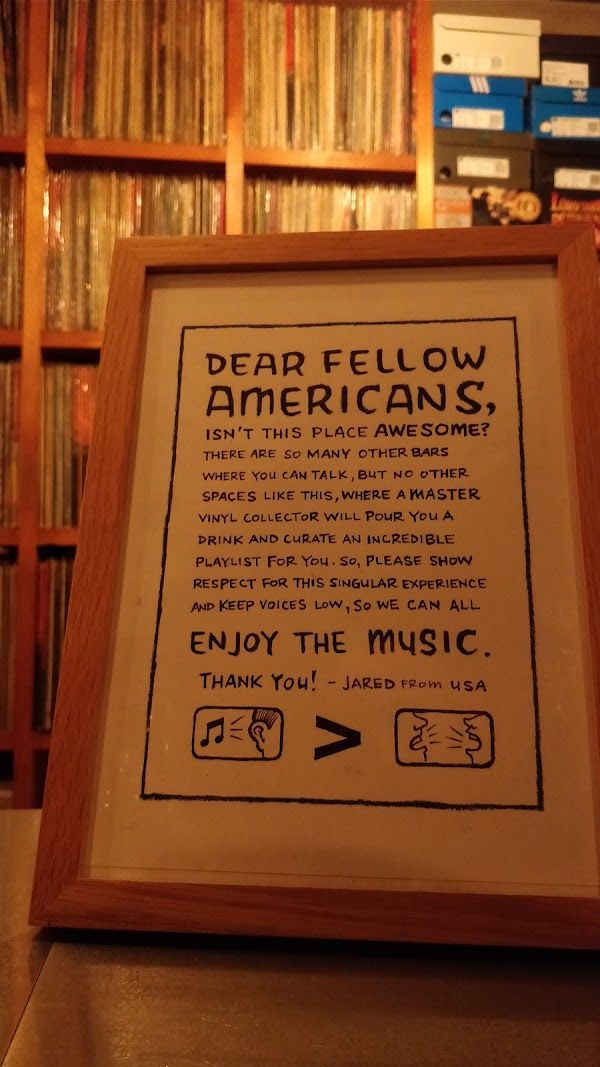 DEAR FELLOW
AMERICANS,
ISN'T THIS PLACE AWESOME?
THERE ARE SO MANY OTHER BARS
WHERE YOU CAN TALK, BUT NO OTHER
SPACES LIKE THIS, WHERE A MASTER
VINYL COLLECTOR WILL POUR YOU A
DRINK AND CURATE AN INCREDIBLE
PLAYLIST FOR YOU. SO, PLEASE SHOW
RESPECT FOR THIS SINGULAR EXPERIENCE
AND KEEP VOICES LOW, SO WE CAN ALL
ENJOY THE MUSIC.
THANK YOU! - JARED FROM USA
>